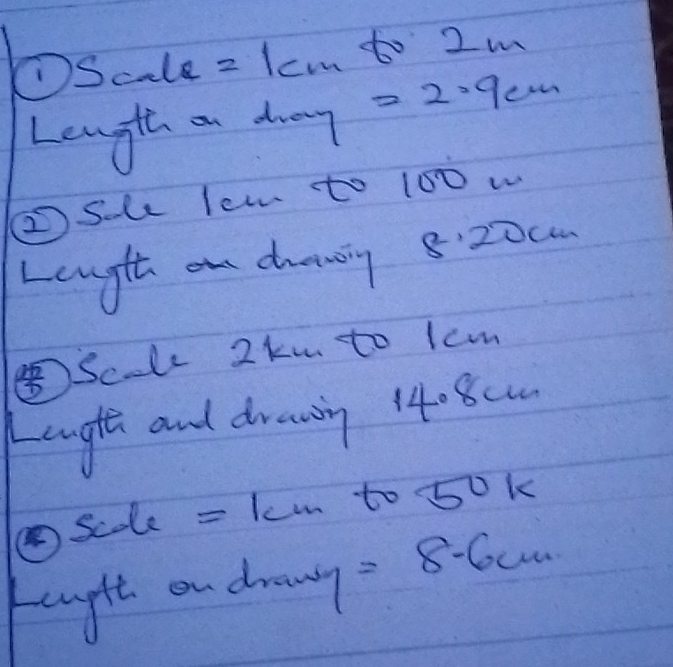 ① Scale = 1cm to 2m
Length on drawing = 2.9cm
② Scale 1cm to 100 m
Length on drawing 8.20cm
Scale 2km to 1cm
Length and drawing 14.8cm
Scale = 1cm to 50k
Length on drawing = 8.6cm